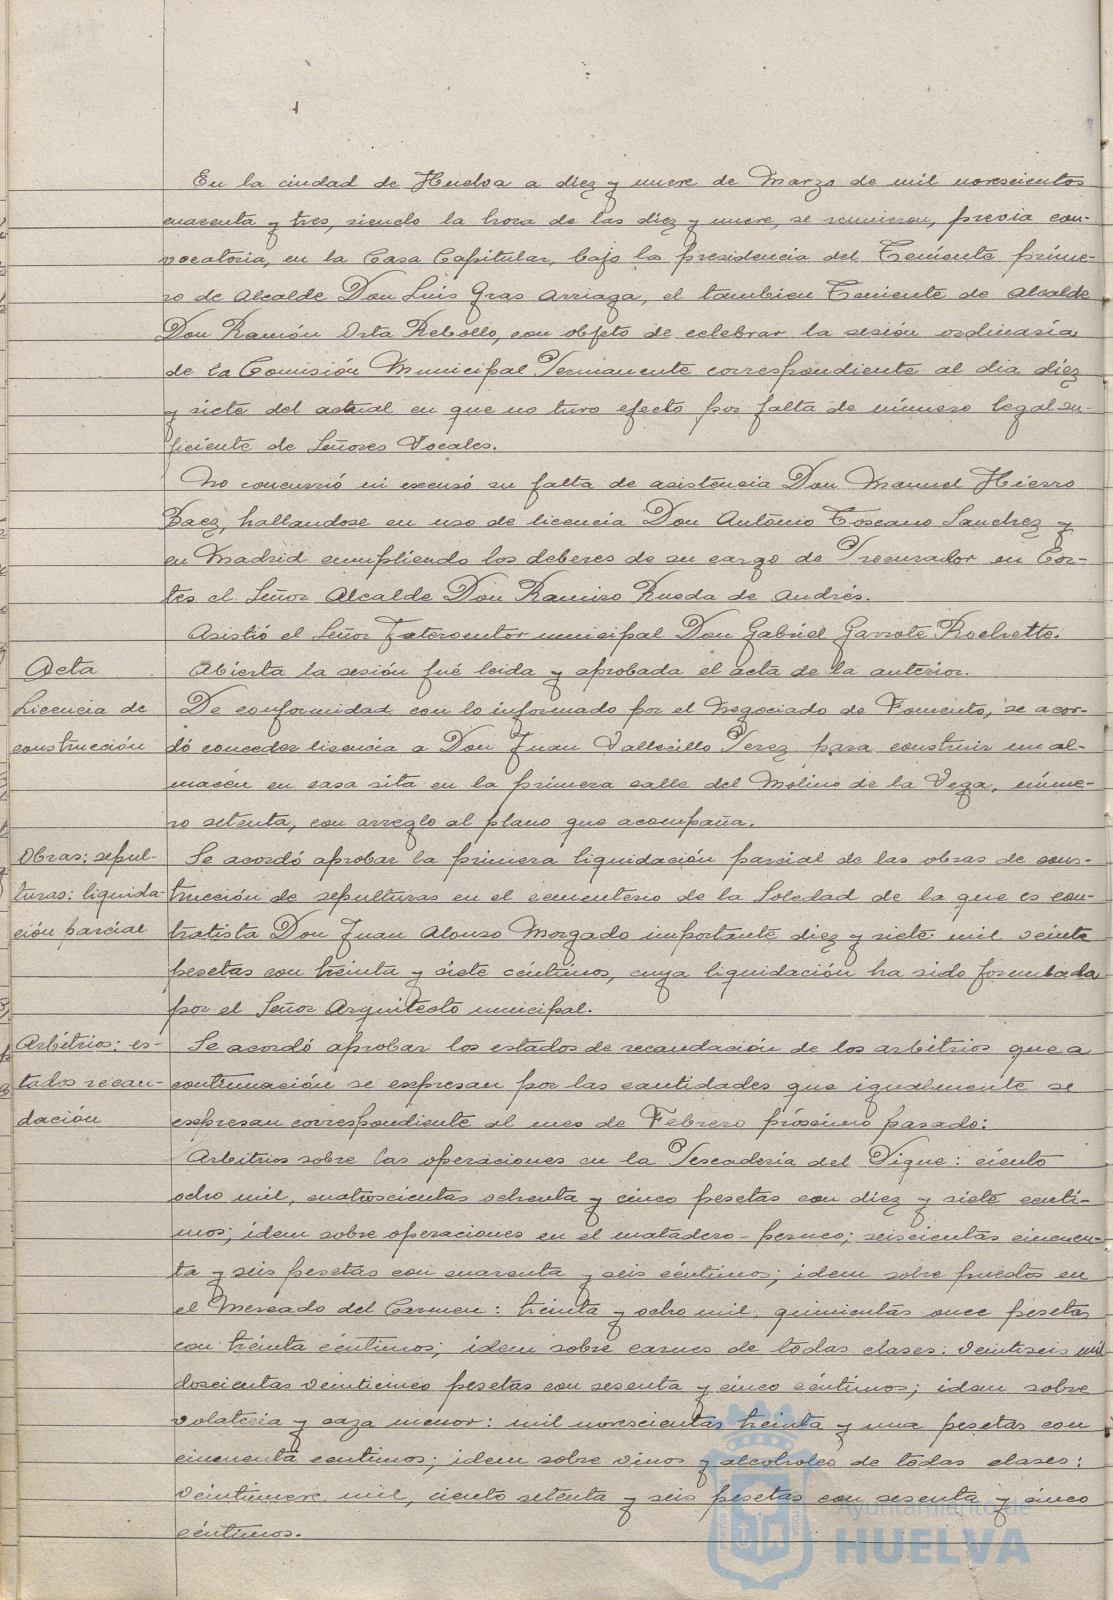 En la ciudad de Huelva a diez y nueve de Marzo de mil novescientos
cuarenta y tres, siendo la hora de las diez y nueve, se reunieron, previa con-
vocatoria, en la Casa Capitular, bajo la presidencia del Teniente prime-
ro de Alcalde Don Luis Gras Arriaga, el tambien Teniente de Alcalde
Don Ramón Orta Rebollo, con objeto de celebrar la sesión ordinaria
de la Comisión Municipal Permanente correspondiente al dia diez
y siete del actual en que no tuvo efecto por falta de número legal su-
ficiente de Señores Vocales.
No concurrió ni excusó su falta de asistencia Don Manuel Hierro
Baez, hallandose en uso de licencia Don Antonio Toscano Sanchez y
en Madrid cumpliendo los deberes de su cargo de Procurador en Cor-
tes el Señor Alcalde Don Ramiro Rueda de Andrés.
Asistió el Señor Interventor municipal Don Gabriel Garrote Rochette.
Acta
Abierta la sesión fué leida y aprobada el acta de la anterior.
Licencia de
construcción
De conformidad con lo informado por el Negociado de Fomento, se acor-
dó conceder licencia a Don Juan Vallecillo Perez para construir un al-
macén en casa sita en la primera calle del Molino de la Vega, núme-
ro setenta, con arreglo al plano que acompaña.
Obras; sepul-
turas: liquida-
ción parcial
Se acordó aprobar la primera liquidación parcial de las obras de cons-
trucción de sepulturas en el cementerio de la Soledad de la que es con-
tratista Don Juan Alonso Morgado importante diez y siete mil veinte
pesetas con treinta y siete céntimos, cuya liquidación ha sido formulada
por el Señor Arquitecto municipal.
Arbitrios: es-
tados recau-
dación
Se acordó aprobar los estados de recaudación de los arbitrios que a
continuación se expresan por las cantidades que igualmente se
expresan correspondiente al mes de Febrero próximo pasado:
Arbitrios sobre las operaciones en la Pescaderia del Dique: ciento
ocho mil, cuatroscientas ochenta y cinco pesetas con diez y siete centi-
mos; idem sobre operaciones en el matadero - perneo; seiscientas cincuen-
ta y seis pesetas con cuarenta y seis céntimos; idem sobre puestos en
el Mercado del Carmen: treinta y ocho mil, quinientas once pesetas
con treinta céntimos; idem sobre carnes de todas clases: veintiseis mil
doscientas veinticinco pesetas con sesenta y cinco céntimos; idem sobre
volateria y caza menor: mil novescientas treinta y una pesetas con
cincuenta centimos; idem sobre vinos y alcoholes de todas clases:
veintinueve mil, ciento setenta y seis pesetas con sesenta y cinco
céntimos.
Ayuntamiento de
HUELVA